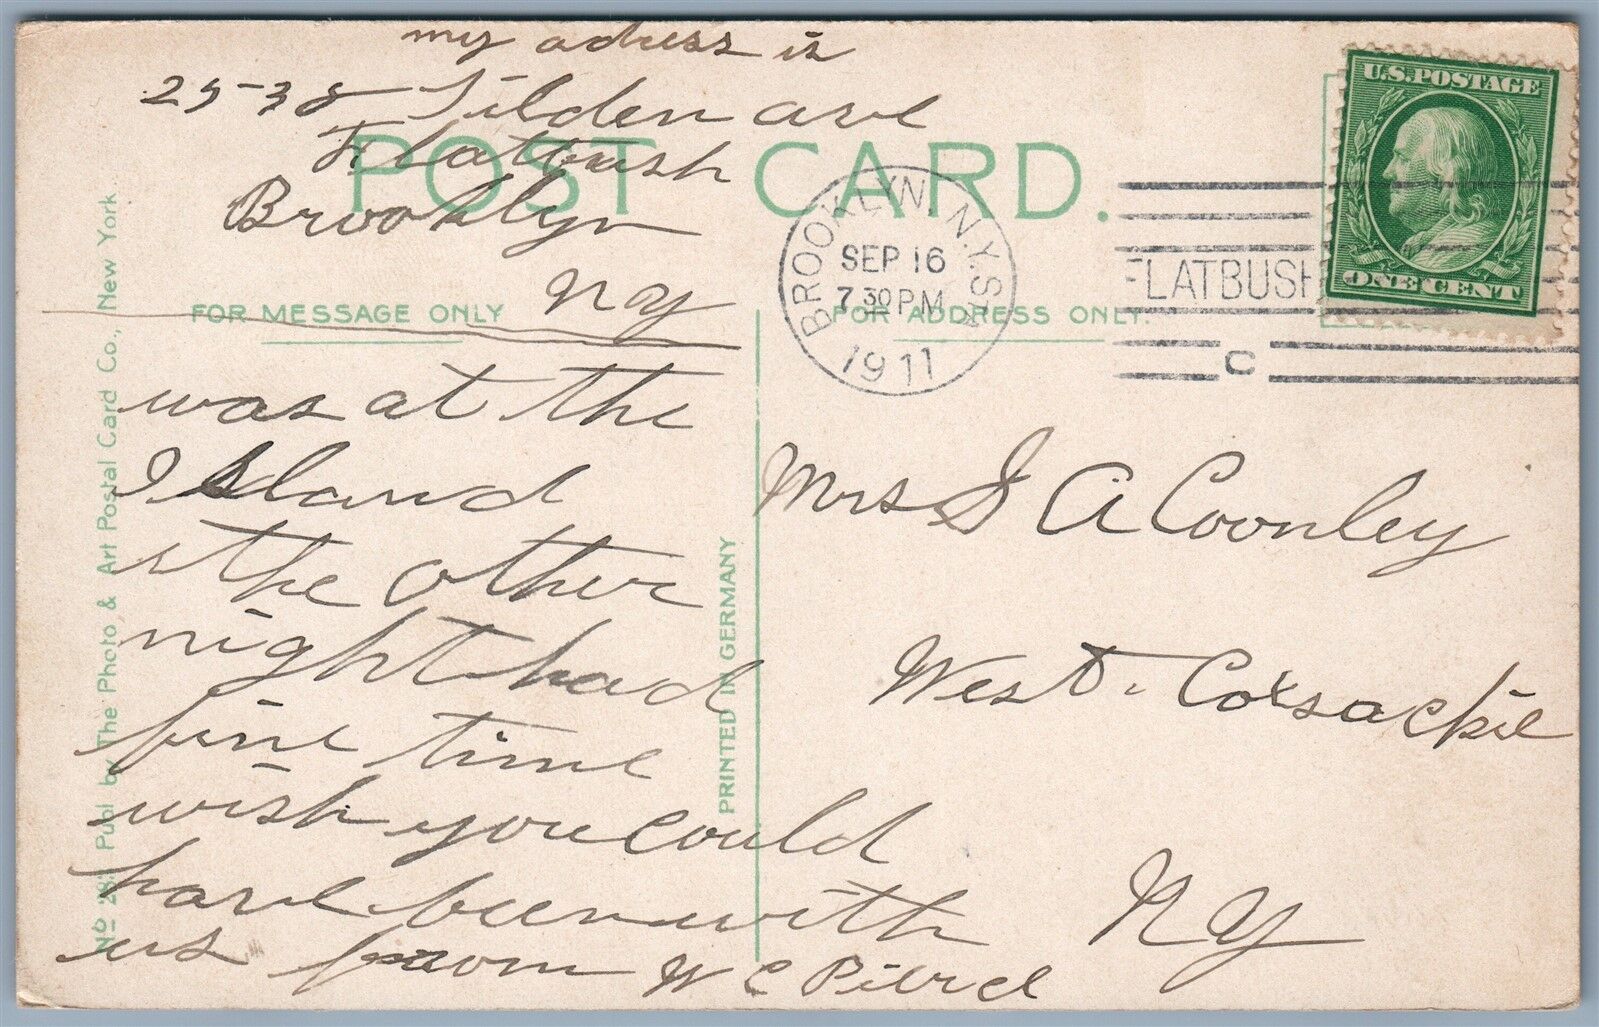 my adress is
25-38 Tilden ave
Flatbush
Brooklyn
NY
POST CARD.
FOR MESSAGE ONLY
FOR ADDRESS ONLY.
was at the
Island
the other
night had
fine time
wish you could
have been with
us from W C Pierce
Nº 283 Publ by The Photo & Art Postal Card Co., New York
PRINTED IN GERMANY
BROOKLYN, N.Y.
SEP 16
7 30 PM
1911
FLATBUSH
C
U.S. POSTAGE
ONE CENT
Mrs J A Coonley
West Coxsackie
NY